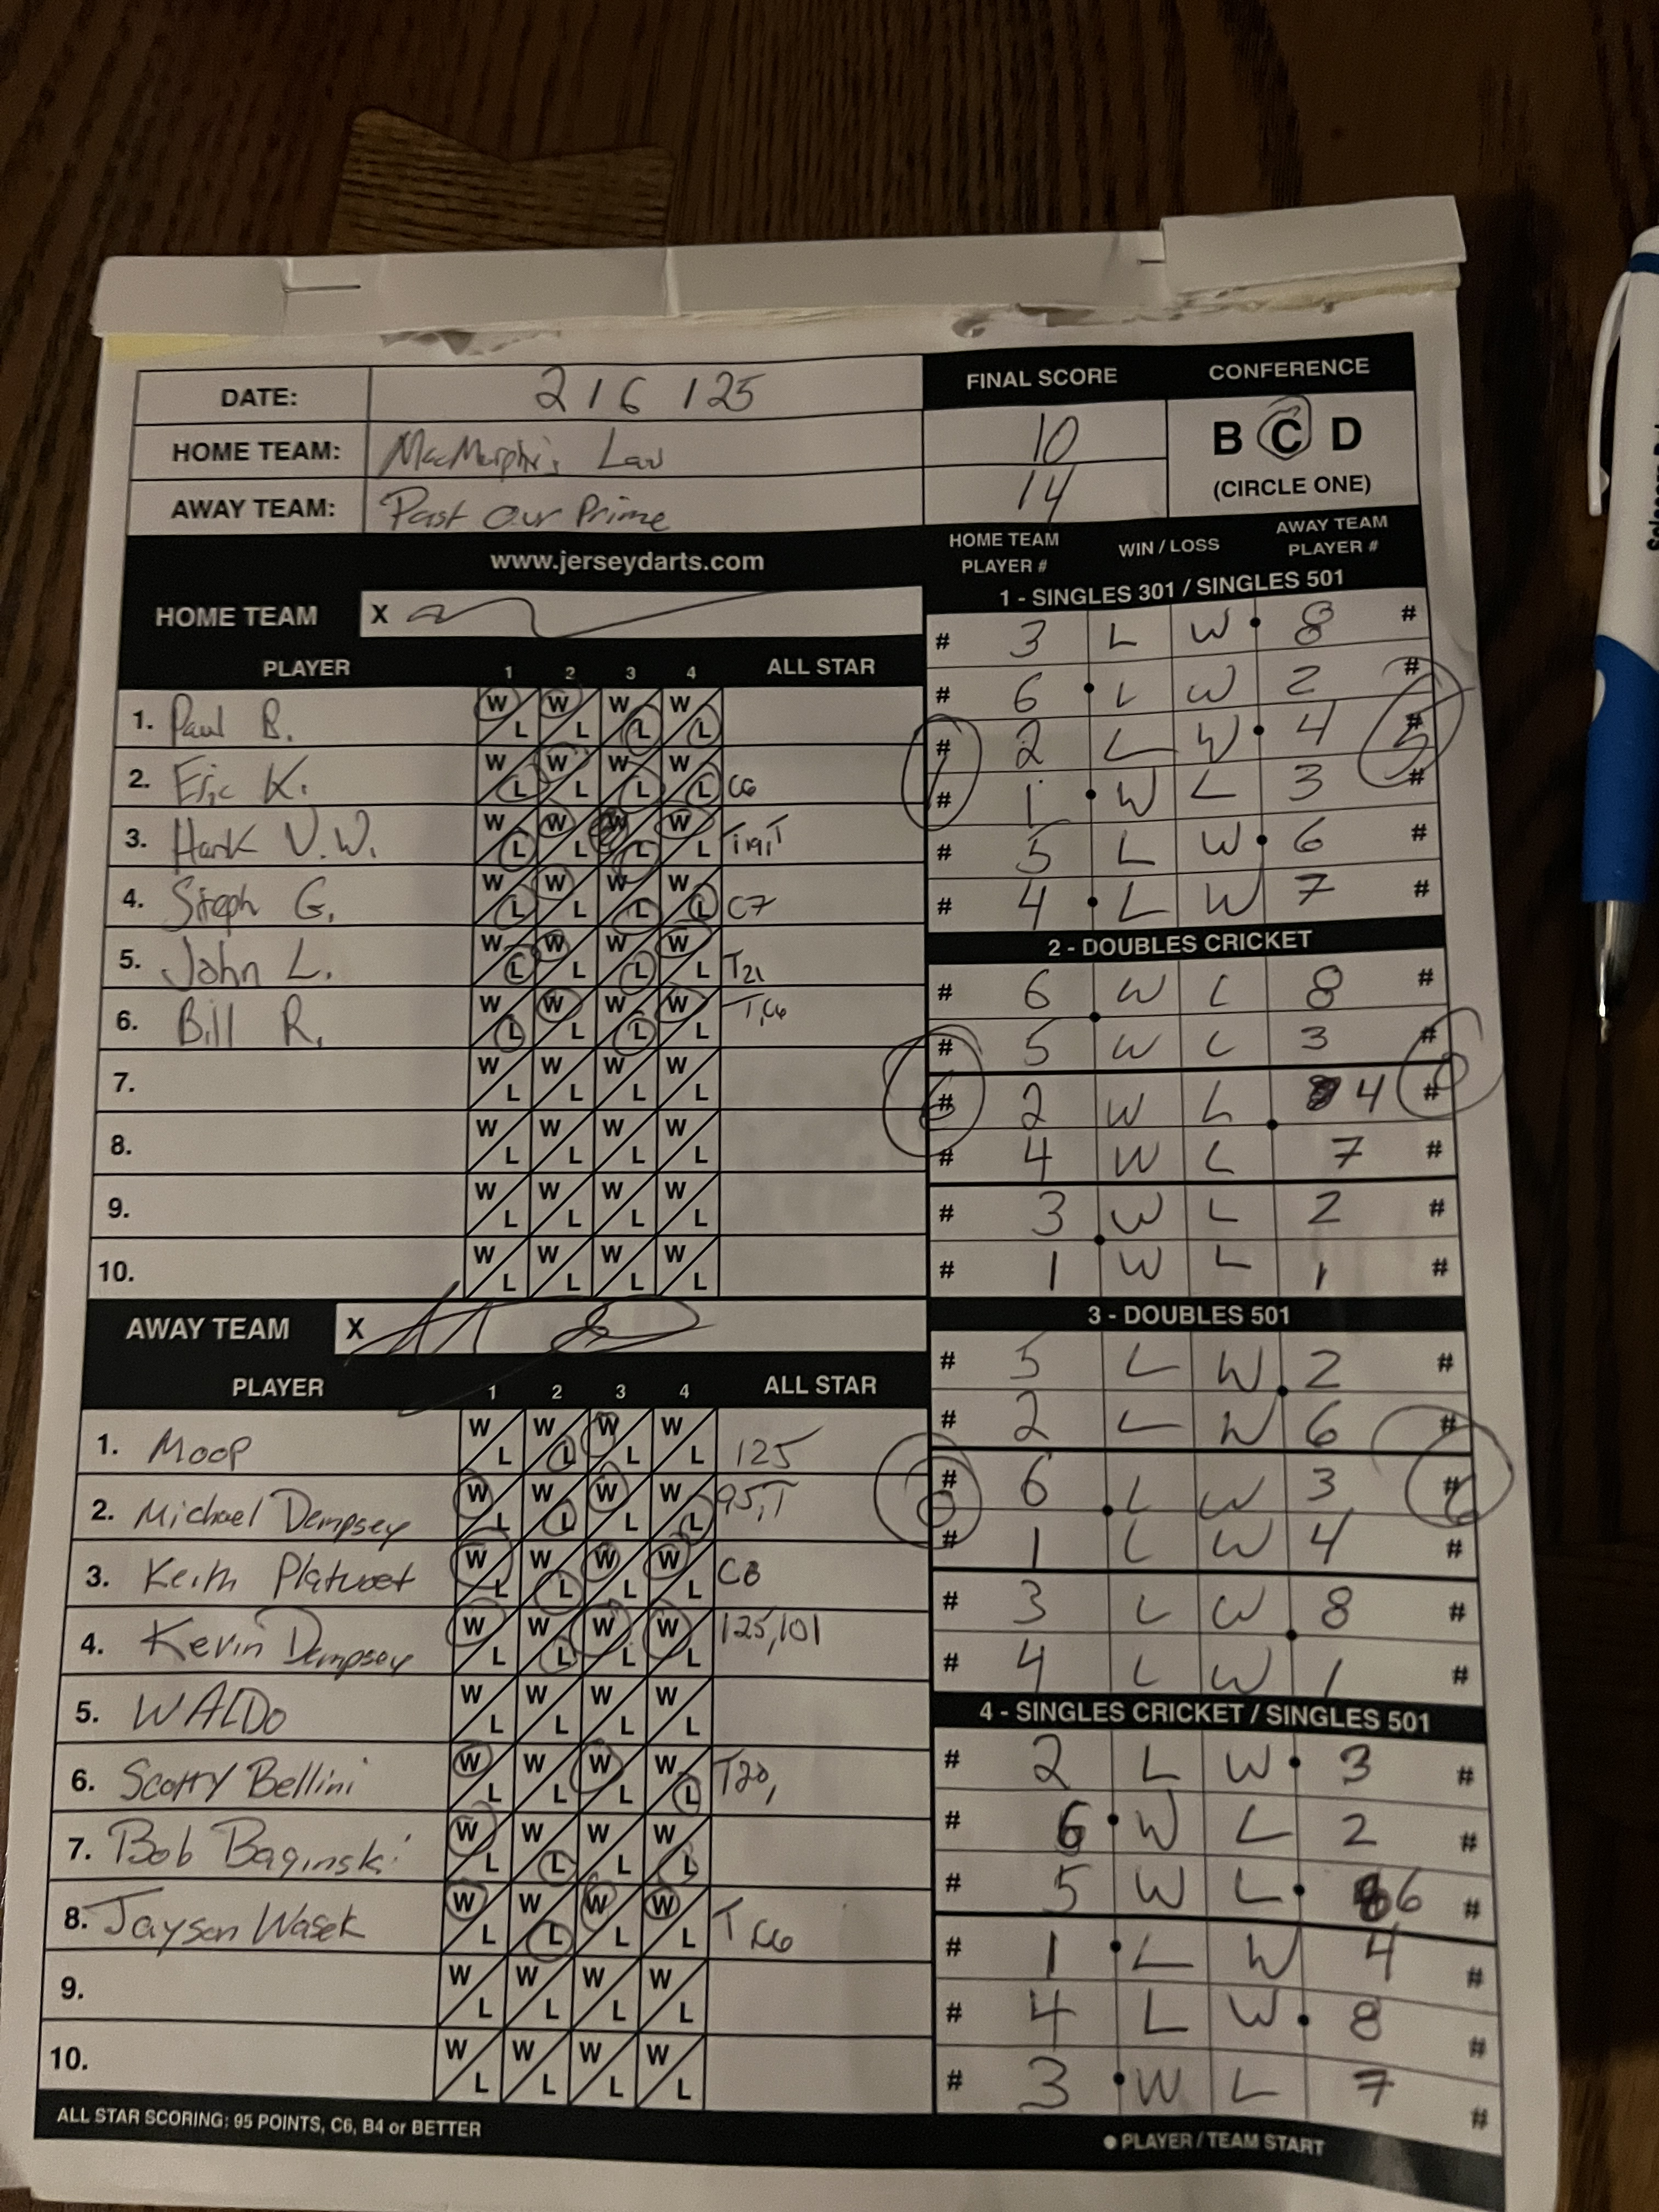 DATE: 2 / 6 / 25
FINAL SCORE
CONFERENCE
HOME TEAM: MacMurphi's Law
10
B C D
AWAY TEAM: Past Our Prime
14
(CIRCLE ONE)
www.jerseydarts.com
HOME TEAM X
PLAYER 1 2 3 4 ALL STAR
1. Paul B. W L W L W L W L
2. Eric K. W L W L W L W L C6
3. Hank V.W. W L W L W L W L T119,T
4. Steph G. W L W L W L W L C7
5. John L. W L W L W L W L T21
6. Bill R. W L W L W L W L T,C6
7. W L W L W L W L
8. W L W L W L W L
9. W L W L W L W L
10. W L W L W L W L
AWAY TEAM X
PLAYER 1 2 3 4 ALL STAR
1. Moop W L W L W L W L 125
2. Michael Dempsey W L W L W L W L 95,T
3. Keith Platvoet W L W L W L W L C8
4. Kevin Dempsey W L W L W L W L 125,101
5. WALDO W L W L W L W L
6. Scotty Bellini W L W L W L W L T20,
7. Bob Baginski W L W L W L W L
8. Jayson Wasek W L W L W L W L T,C6
9. W L W L W L W L
10. W L W L W L W L
ALL STAR SCORING: 95 POINTS, C6, B4 or BETTER
HOME TEAM PLAYER # WIN / LOSS AWAY TEAM PLAYER #
1 - SINGLES 301 / SINGLES 501
# 3 L W 8 #
# 6 L W 2 #
# 2 L W 4 #
# 1 W L 3 #
# 5 L W 6 #
# 4 L W 7 #
1
5
2 - DOUBLES CRICKET
# 6 W L 8 #
# 5 W L 3 #
# 2 W L 4 #
# 4 W L 7 #
# 3 W L 2 #
# 1 W L 1 #
6
0
3 - DOUBLES 501
# 5 L W 2 #
# 2 L W 6 #
# 6 L W 3 #
# 1 L W 4 #
# 3 L W 8 #
# 4 L W 1 #
0
6
4 - SINGLES CRICKET / SINGLES 501
# 2 L W 3 #
# 6 W L 2 #
# 5 W L 6 #
# 1 L W 4 #
# 4 L W 8 #
# 3 W L 7 #
● PLAYER / TEAM START